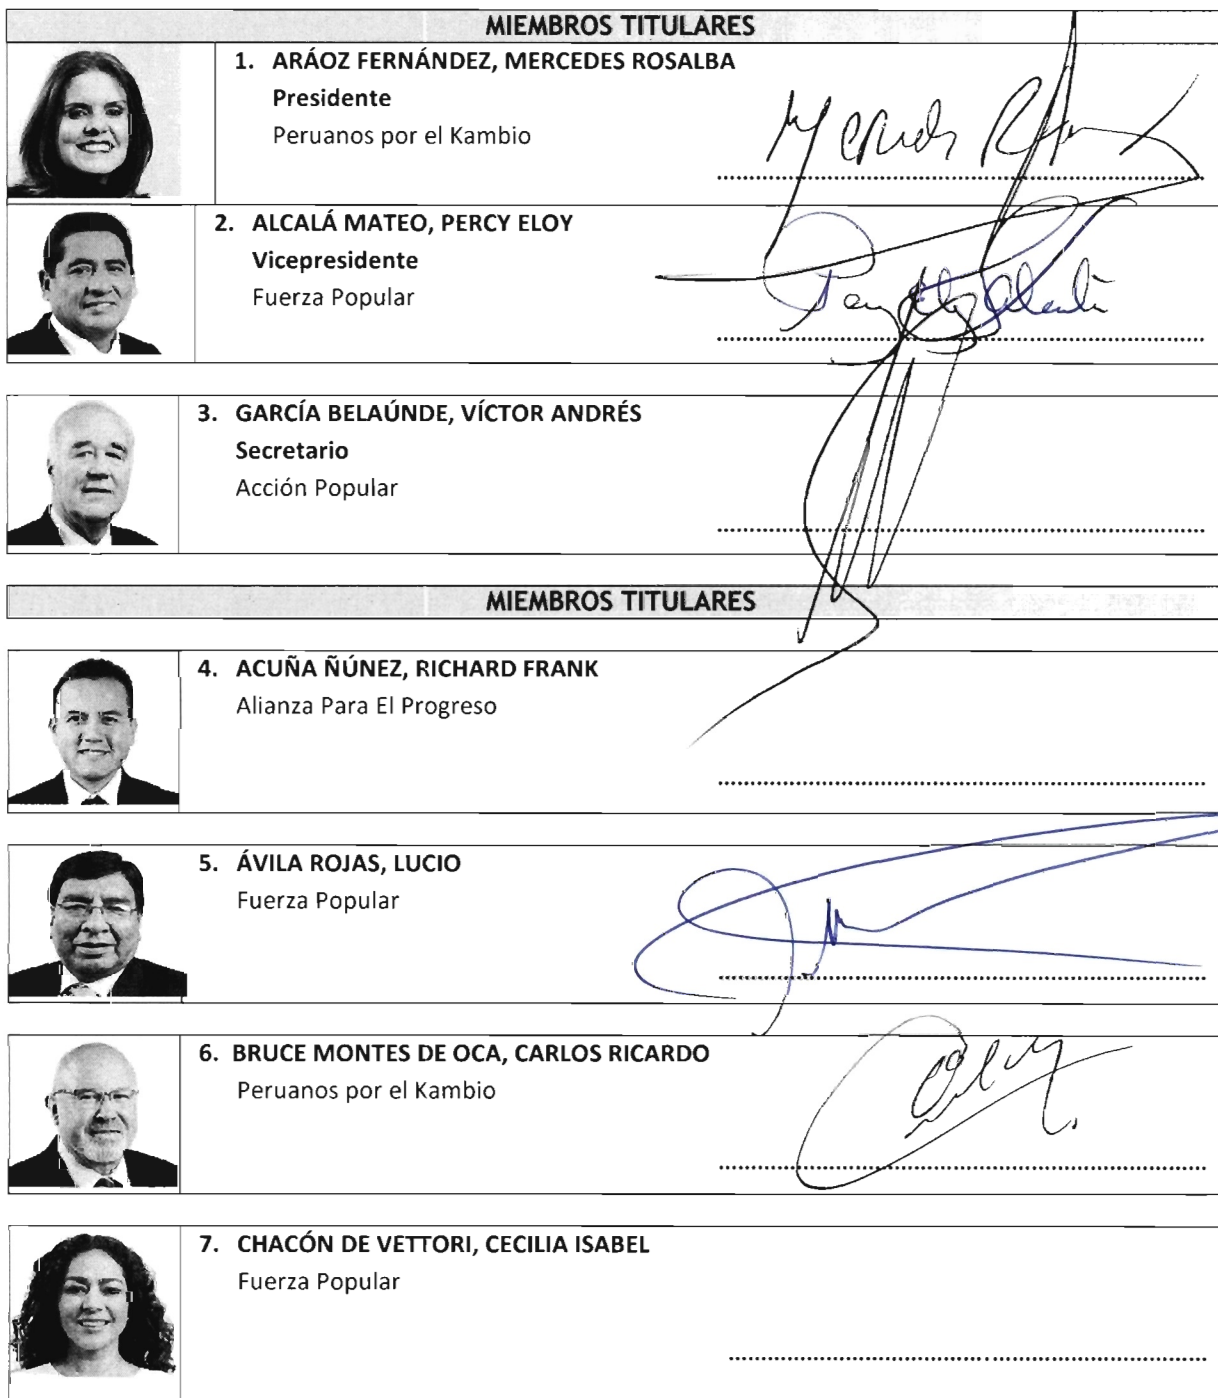 MIEMBROS TITULARES
1. ARÁOZ FERNÁNDEZ, MERCEDES ROSALBA
Presidente
Peruanos por el Kambio
2. ALCALÁ MATEO, PERCY ELOY
Vicepresidente
Fuerza Popular
3. GARCÍA BELAÚNDE, VÍCTOR ANDRÉS
Secretario
Acción Popular
MIEMBROS TITULARES
4. ACUÑA ÑÚNEZ, RICHARD FRANK
Alianza Para El Progreso
5. ÁVILA ROJAS, LUCIO
Fuerza Popular
6. BRUCE MONTES DE OCA, CARLOS RICARDO
Peruanos por el Kambio
7. CHACÓN DE VETTORI, CECILIA ISABEL
Fuerza Popular